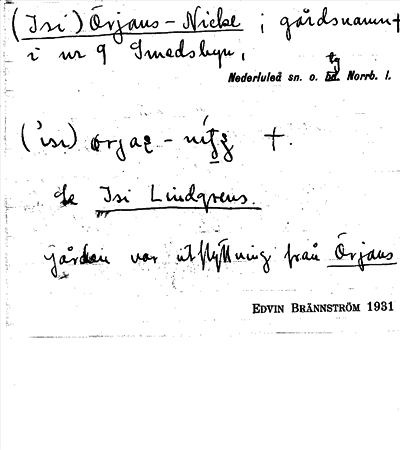 (Isi) Örjans-Nicke ; gårdsnamn†
i nr 9 Smedsbyn,
tg
Nederluleå sn. o. sd. Norrb. l.
†.
se Isi Lindgrens.
gården var utflyttning från Örjans
EDVIN BRÄNNSTRÖM 1931